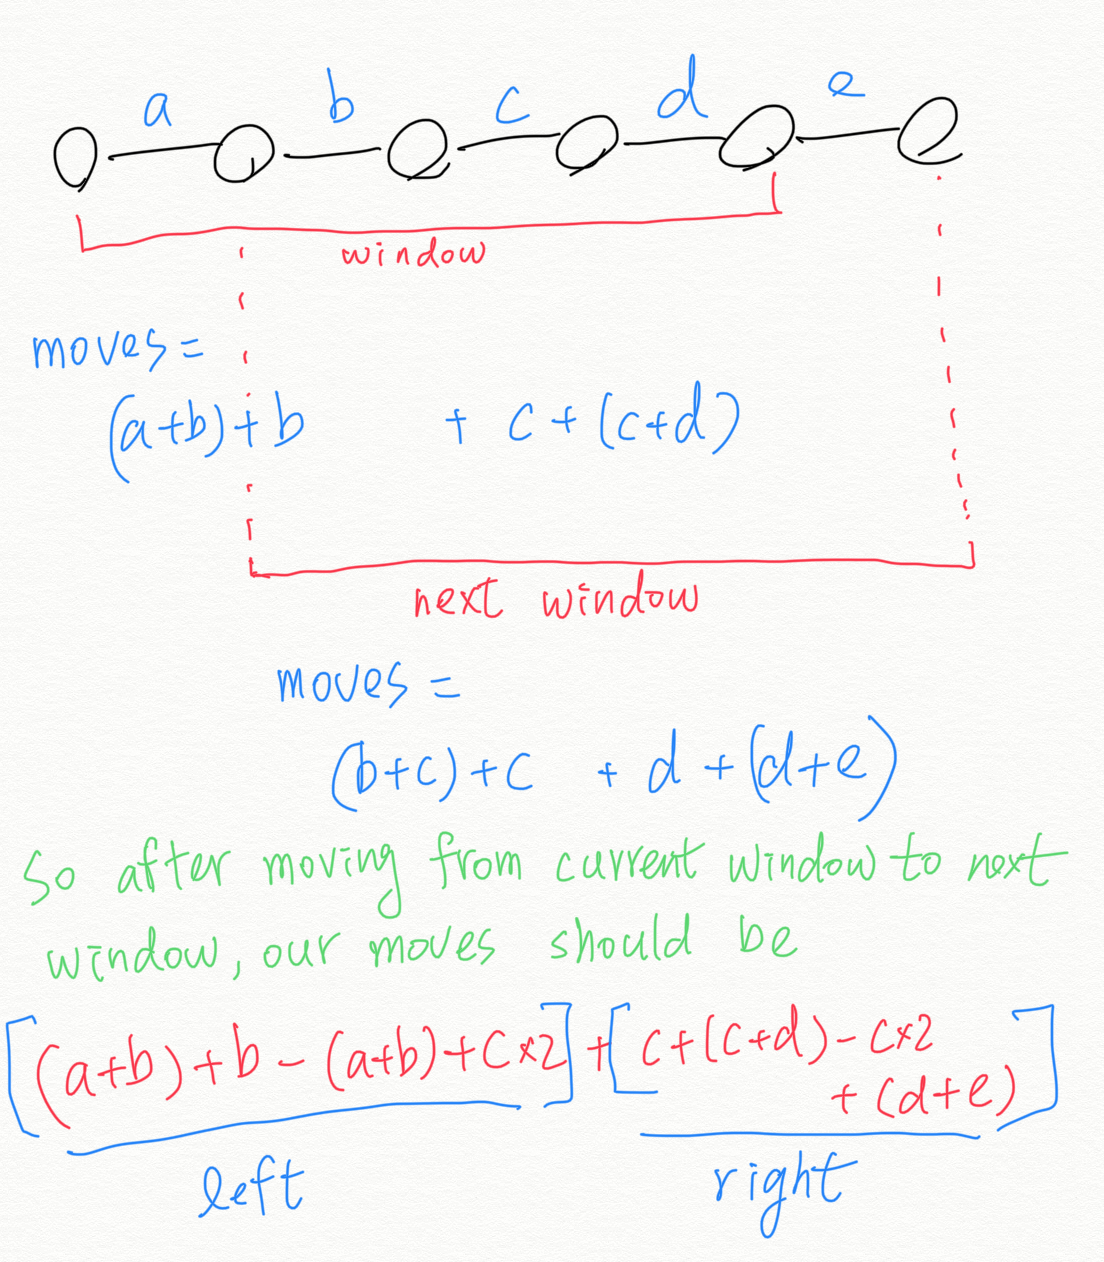 a b c d e
window
moves =
(a+b)+b + c+(c+d)
next window
moves =
(b+c)+c + d+(d+e)
So after moving from current window to next
window, our moves should be
[(a+b)+b-(a+b)+c×2]+[c+(c+d)-c×2
+(d+e)]
left right